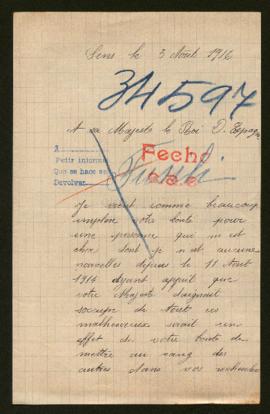 Sens le 3 Aout 1916
34597
A sa Majesté le Roi D. Espagne
Fecho
A
Petit informe
Que se hace
Devolver
Je vient comme beaucoup
implore votre bonté pour
une personne qui m est
cher dont je n ai aucune
nouvelles depuis le 11 Aout
1914 ayant apprit que
votre Majesté daignait
soccuper de tout ces
malheureux serait un
effet de votre bonté de
mettre au rang des
autres dans vos recherches